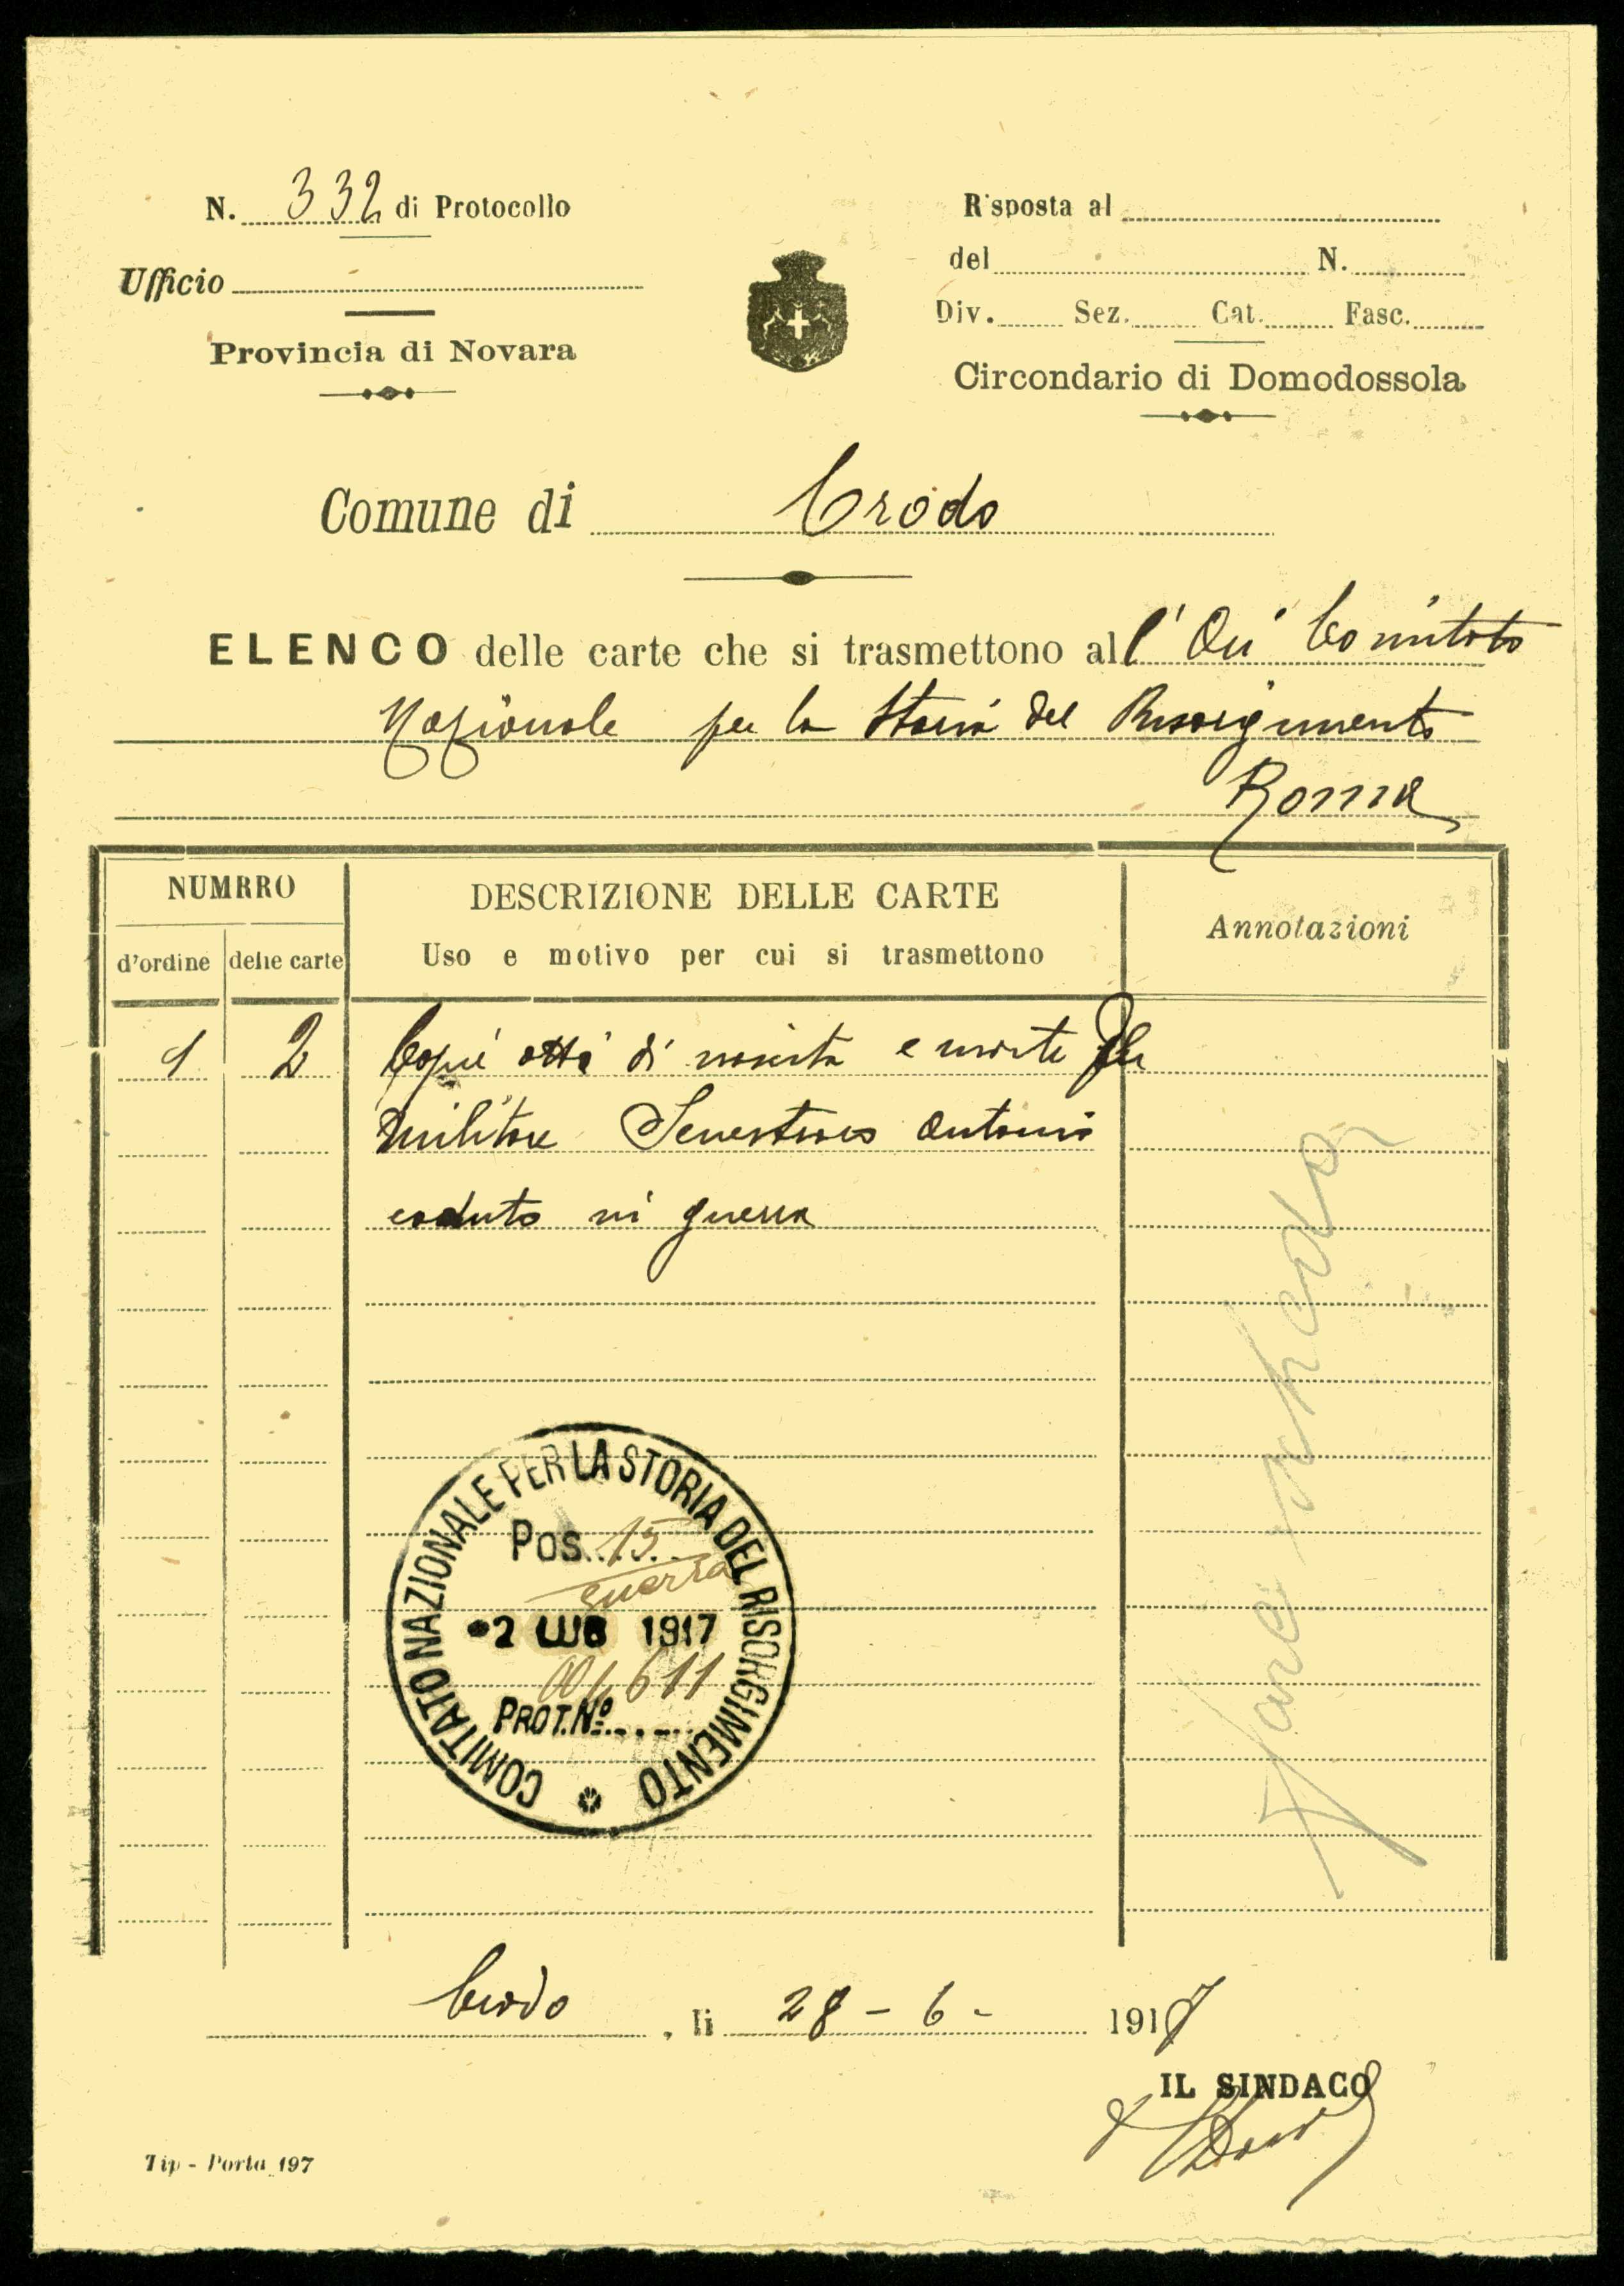 N. 332 di Protocollo
Ufficio
Provincia di Novara
Risposta al
del N.
Div. Sez. Cat. Fasc.
Circondario di Domodossola
Comune di Crodo
ELENCO delle carte che si trasmettono all' On Comitato
Nazionale per la Storia del Risorgimento
Roma
NUMRRO
d'ordine delle carte
DESCRIZIONE DELLE CARTE
Uso e motivo per cui si trasmettono
Annotazioni
1 2 Copie atti di nascita e morte del
militare Antonio
caduto in guerra
COMITATO NAZIONALE PER LA STORIA DEL RISORGIMENTO
Pos. 15
guerra
2 LUG 1917
004611
PROT. Nº
Fare scheda
Crodo, li 28-6-1917
IL SINDACO
Tip - Porta 197